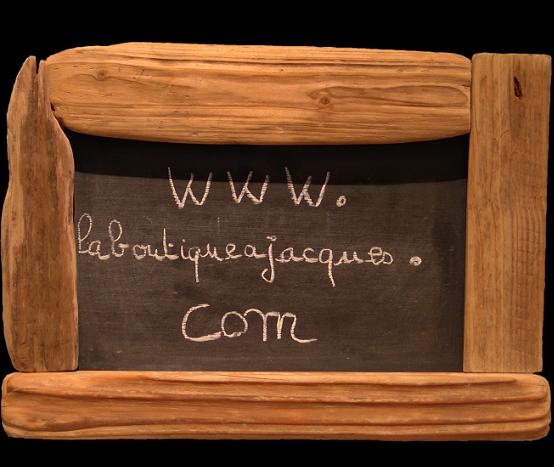 WWW.
laboutiqueajacques.
com